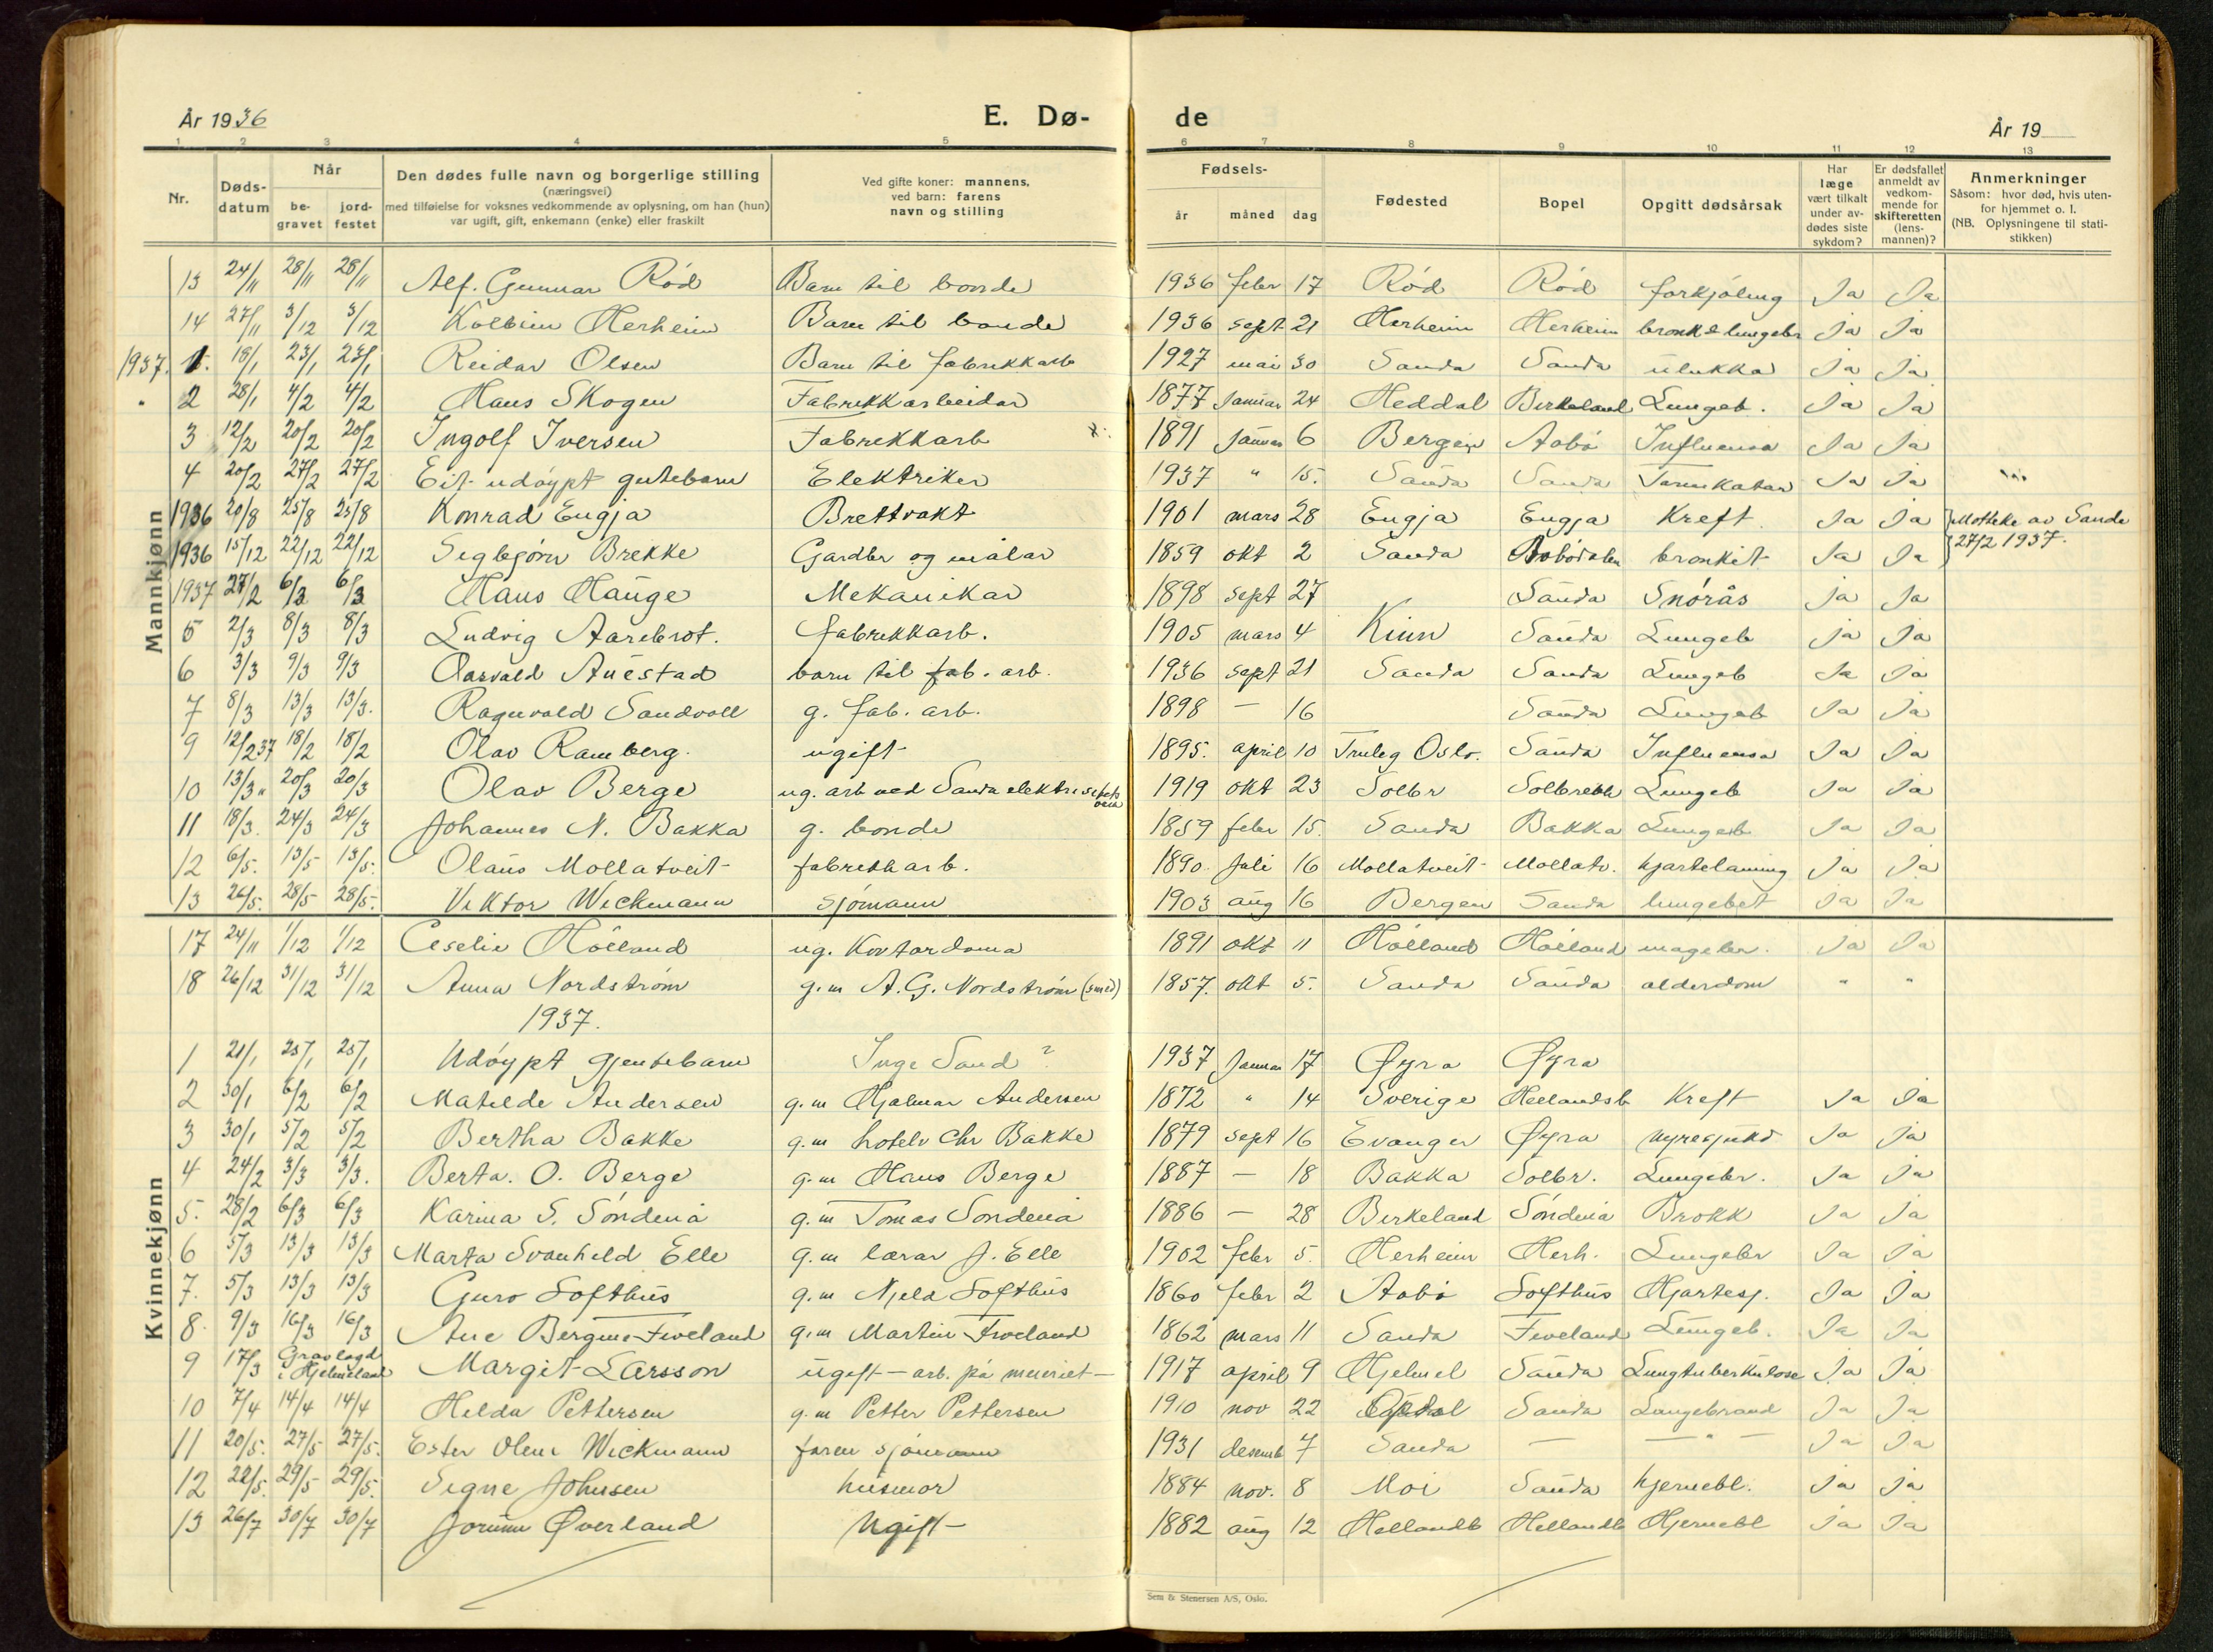 År 1936 E. Dø- de År 19
1 2 3 4 5 6 7 8 9 10 11 12 13
Nr. Døds-datum Når be-gravet jord-festet Den dødes fulle navn og borgerlige stilling (næringsvei) med tilføielse for voksnes vedkommende av oplysning, om han (hun) var ugift, gift, enkemann (enke) eller fraskilt Ved gifte koner: mannens, ved barn: farens navn og stilling Fødsels- år måned dag Fødested Bopel Opgitt dødsårsak Har læge vært tilkalt under av-dødes siste sykdom? Er dødsfallet anmeldt av vedkom-mende for skifteretten (lens-mannen)? Anmerkninger Såsom: hvor død, hvis uten-for hjemmet o. l. (NB. Oplysningene til stati-stikken)
Mannkjønn
13 24/11 28/11 28/11 Alf. Gunnar Rød Barn til bonde 1936 febr 17 Rød Rød forkjøling Ja Ja
14 27/11 3/12 3/12 Kolbein Herheim Barn til bonde 1936 sept 21 Herheim Herheim bronk & lungebr Ja Ja
1937. 1. 18/1 23/1 23/1 Reidar Olsen Barn til fabrikkarb 1927 mai 30 Sanda Sanda ulukka Ja Ja
" 2 28/1 4/2 4/2 Hans Skogen Fabrikkarbeidar 1877 Januar 24 Heddal Birkeland Lungeb. Ja Ja
3 12/2 20/2 20/2 Ingolf Iversen Fabrikkarb 1891 Januar 6 Bergen Aabø Influensa Ja Ja
4 20/2 27/2 27/2 Eit udøypt gutebarn Elektriker 1937 " 15. Sauda Sauda Tarmkatar Ja Ja
1936 20/8 25/8 25/8 Konrad Engja Brettvakt 1901 mars 28 Engja Engja Kreft. Ja Ja Motteke av Sande
1936 15/12 22/12 22/12 Segbjørn Brekke Gardbr og målar 1859 okt 2 Sauda Aabødalen bronkit Ja Ja 27/2 1937.
1937 27/2 6/3 6/3 Hans Hauge Mekanikar 1898 sept 27 Sauda Snórås ja Ja
5 2/3 8/3 8/3 Ludvig Aarebrot. fabrikkarb. 1905 mars 4 Kinn Sauda Lungeb ja Ja
6 3/3 9/3 9/3 Aasvald Auestad barn til fab. arb. 1936 sept 21 Sauda Sauda Lungeb Ja Ja
7 8/3 13/3 13/3. Ragnvald Sandvoll g. fab. arb. 1898 — 16 Sauda Lungeb Ja Ja
9 12/2 37 18/2 18/2 Olav Ramberg. ugift 1895. april 10 Truleg Oslo. Sauda Influensa Ja Ja
10 13/3 " 20/3 20/3 Olav Berge ug. arb ved Sauda elektrisitets 1919 okt 23 Solbr Solbrekk Lungeb Ja Ja
11 18/3. 24/3 24/3 Johannes N. Bakka g. bonde 1859 febr 15. Sauda Bakka Lungeb Ja Ja
12 6/5. 13/5 13/5. Olaus Mollatveit fabrikkarb. 1890. Juli 16 Mollatveit Mollatv. hjartelaming Ja Ja
13 26/5. 28/5 28/5. Viktor Wickmann Sjømann 1903 aug 16 Bergen Sauda lungebet Ja Ja
Kvinnekjønn
17 24/11 1/12 1/12 Ceselie Hölland ug. Kontordama 1891 okt 11 Hölland Hölland magebr. Ja Ja
18 26/12 31/12 31/12 Anna Nordstrøm g.m A. G. Nordstrøm (smed) 1857. okt 5. Sauda Sauda alderdom " "
1937.
1 21/1 25/1 25/1 Udøypt gjentebarn Inge Sand ? 1937 Januar 17 Øyra Øyra
2 30/1 6/2 6/2 Matilde Andersen g.m Hjalmar Andersen 1872 " 14 Sverige Hellandsb Kreft Ja Ja
3 30/1 5/2 5/2 Bertha Bakke g.m hotelv Chr Bakke 1879 sept 16 Evanger Øyra nyresjukd Ja ja
4 24/2 3/3 3/3. Berta. O. Berge g.m Hans Berge 1887 — 18 Bakka Solbr. Lungebr. Ja Ja
5. 28/2 6/3 6/3 Karina S. Söndenå g.m Tomas Söndenå 1886 — 28 Birkeland Söndenå Brokk Ja Ja
6 5/3 13/3 13/3 Marta Svanhild Elle g.m lærar J. Elle 1902 febr 5. Herheim Herh. Lungebr Ja Ja
7. 5/3 13/3 13/3 Guro Softhus g.m Njeld Softhus 1860 febr 2 Aabø Softhus Hjartesj. Ja Ja
8. 9/3 16/3 16/3 Ane Bergine Fiveland g.m Martin Fiveland 1862 mars 11 Sauda Fiveland Lungeb. Ja Ja
9 17/3 Gravlagd i Hjelmeland Margit Larsson ugift — arb. på meieriet — 1917 april 9 Hjelmel Sauda Lungtuberkulose Ja Ja
10 7/4 14/4 14/4 Hilda Pettersen g.m Petter Pettersen 1910 nov 22 Sauda Lungebrand Ja Ja
11 20/5. 27/5 27/5. Ester Olene Wickmann faren sjømann 1931 desemb 7 Sauda — — " — Ja Ja
12 22/5. 29/5 29/5. Signe Johnsen husmor 1884 nov. 8 Moi Sauda hjernebl. Ja ja
13 26/7 30/7 30/7 Jorunn Øverland Ugift 1882 aug 12 Hellandb Hellandb Hjernebl Ja Ja
Sem & Stenersen A/S, Oslo.